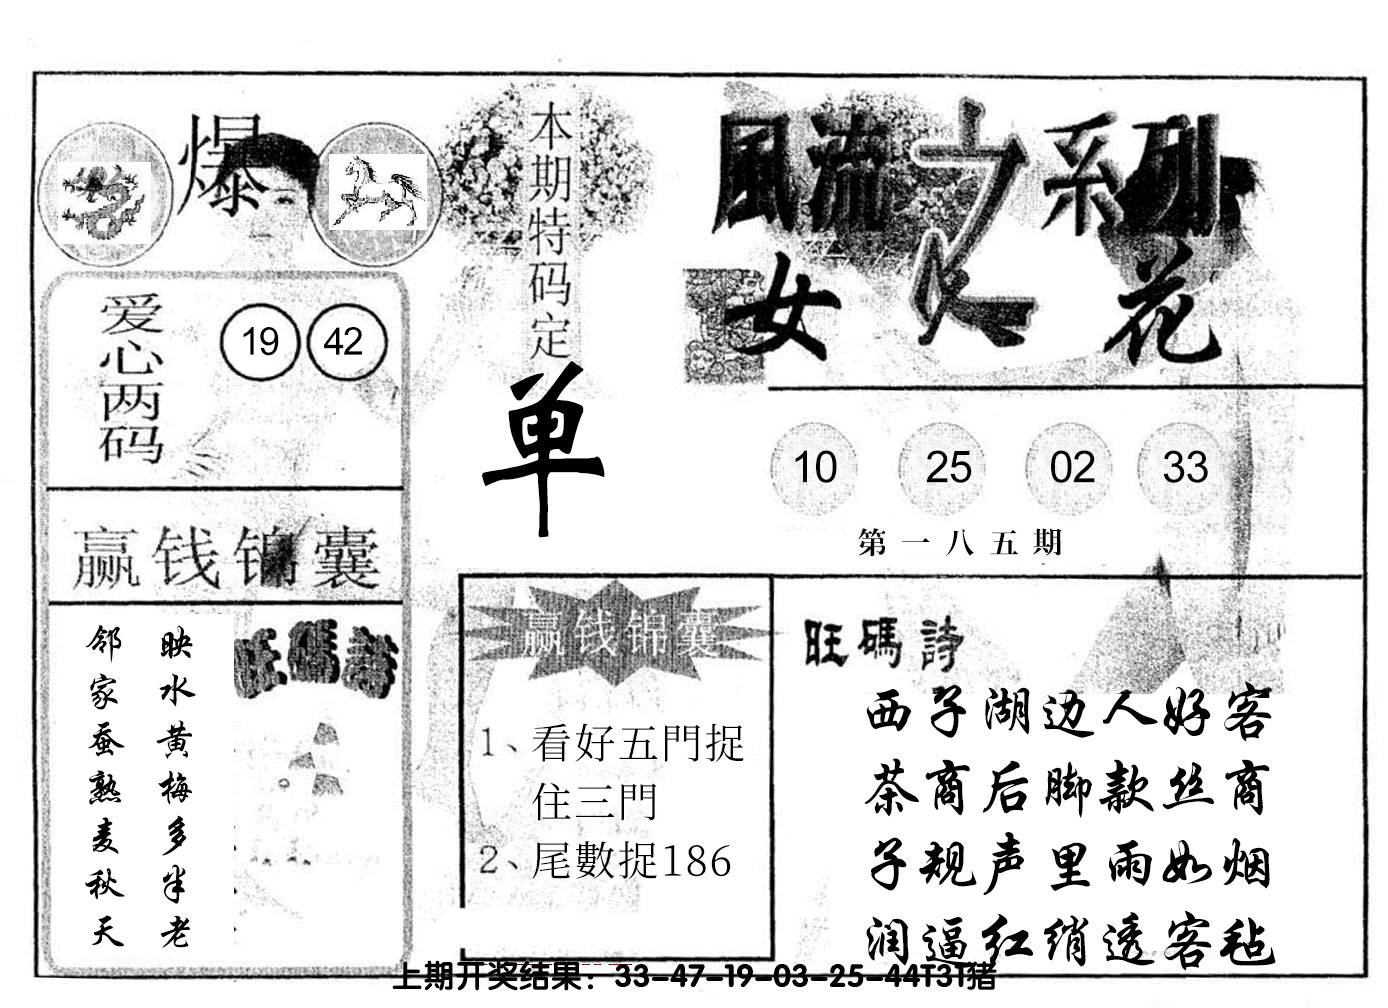 爆
本期特码定
单
風流之系列
女人花
爱心两码
19 42
10 25 02 33
第一八五期
赢钱锦囊
映水黄梅多半老
邻家蚕熟麦秋天
旺碼詩
赢钱锦囊
1、看好五門捉
住三門
2、尾數捉186
旺碼詩
西子湖边人好客
茶商后脚款丝商
子规声里雨如烟
润逼红绡透客毡
上期开奖结果：33-47-19-03-25-44T31猪